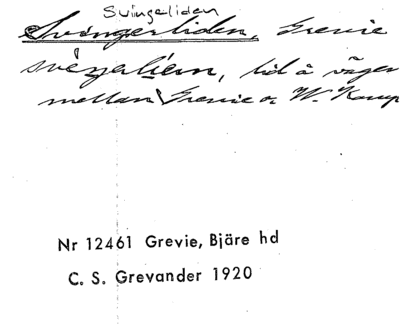 Svingeliden
Svingerliden, Grevie
lid å vägen
mellan Grevie o. W. Karup
Nr 12461 Grevie, Bjäre hd
C. S. Grevander 1920